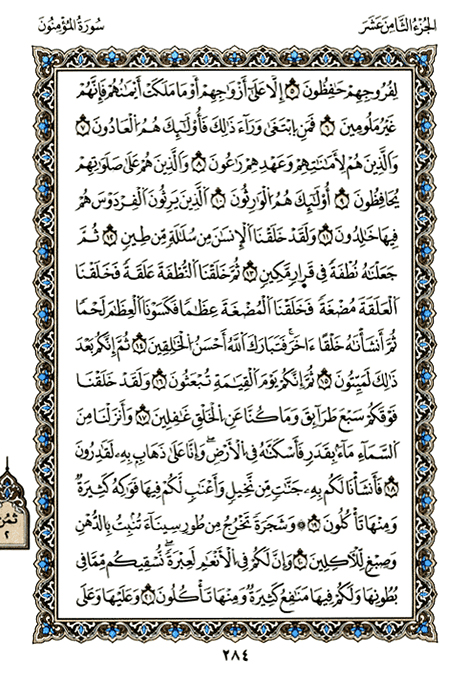 الجُزءُ الثَّامِن عَشَر
سُورَةُ المُؤْمِنُونَ
لِفُرُوجِهِمْ حَٰفِظُونَ ٥ إِلَّا عَلَىٰٓ أَزْوَٰجِهِمْ أَوْ مَا مَلَكَتْ أَيْمَٰنُهُمْ فَإِنَّهُمْ
غَيْرُ مَلُومِينَ ٦ فَمَنِ ٱبْتَغَىٰ وَرَآءَ ذَٰلِكَ فَأُو۟لَٰٓئِكَ هُمُ ٱلْعَادُونَ ٧
وَٱلَّذِينَ هُمْ لِأَمَٰنَٰتِهِمْ وَعَهْدِهِمْ رَٰعُونَ ٨ وَٱلَّذِينَ هُمْ عَلَىٰ صَلَوَٰتِهِمْ
يُحَافِظُونَ ٩ أُو۟لَٰٓئِكَ هُمُ ٱلْوَٰرِثُونَ ١٠ ٱلَّذِينَ يَرِثُونَ ٱلْفِرْدَوْسَ هُمْ
فِيهَا خَٰلِدُونَ ١١ وَلَقَدْ خَلَقْنَا ٱلْإِنسَٰنَ مِن سُلَٰلَةٍ مِّن طِينٍ ١٢ ثُمَّ
جَعَلْنَٰهُ نُطْفَةً فِى قَرَارٍ مَّكِينٍ ١٣ ثُمَّ خَلَقْنَا ٱلنُّطْفَةَ عَلَقَةً فَخَلَقْنَا
ٱلْعَلَقَةَ مُضْغَةً فَخَلَقْنَا ٱلْمُضْغَةَ عِظَٰمًا فَكَسَوْنَا ٱلْعِظَٰمَ لَحْمًا
ثُمَّ أَنشَأْنَٰهُ خَلْقًا ءَاخَرَ ۚ فَتَبَارَكَ ٱللَّهُ أَحْسَنُ ٱلْخَٰلِقِينَ ١٤ ثُمَّ إِنَّكُم بَعْدَ
ذَٰلِكَ لَمَيِّتُونَ ١٥ ثُمَّ إِنَّكُمْ يَوْمَ ٱلْقِيَٰمَةِ تُبْعَثُونَ ١٦ وَلَقَدْ خَلَقْنَا
فَوْقَكُمْ سَبْعَ طَرَآئِقَ وَمَا كُنَّا عَنِ ٱلْخَلْقِ غَٰفِلِينَ ١٧ وَأَنزَلْنَا مِنَ
ٱلسَّمَآءِ مَآءًۢ بِقَدَرٍ فَأَسْكَنَّٰهُ فِى ٱلْأَرْضِ ۖ وَإِنَّا عَلَىٰ ذَهَابٍۭ بِهِۦ لَقَٰدِرُونَ
١٨ فَأَنشَأْنَا لَكُم بِهِۦ جَنَّٰتٍ مِّن نَّخِيلٍ وَأَعْنَٰبٍ لَّكُمْ فِيهَا فَوَٰكِهُ كَثِيرَةٌ
وَمِنْهَا تَأْكُلُونَ ١٩ ۞ وَشَجَرَةً تَخْرُجُ مِن طُورِ سَيْنَآءَ تَنۢبُتُ بِٱلدُّهْنِ
وَصِبْغٍ لِّلْءَاكِلِينَ ٢٠ وَإِنَّ لَكُمْ فِى ٱلْأَنْعَٰمِ لَعِبْرَةً ۖ نُّسْقِيكُم مِّمَّا فِى
بُطُونِهَا وَلَكُمْ فِيهَا مَنَٰفِعُ كَثِيرَةٌ وَمِنْهَا تَأْكُلُونَ ٢١ وَعَلَيْهَا وَعَلَى
ثمن
٢
٢٨٤